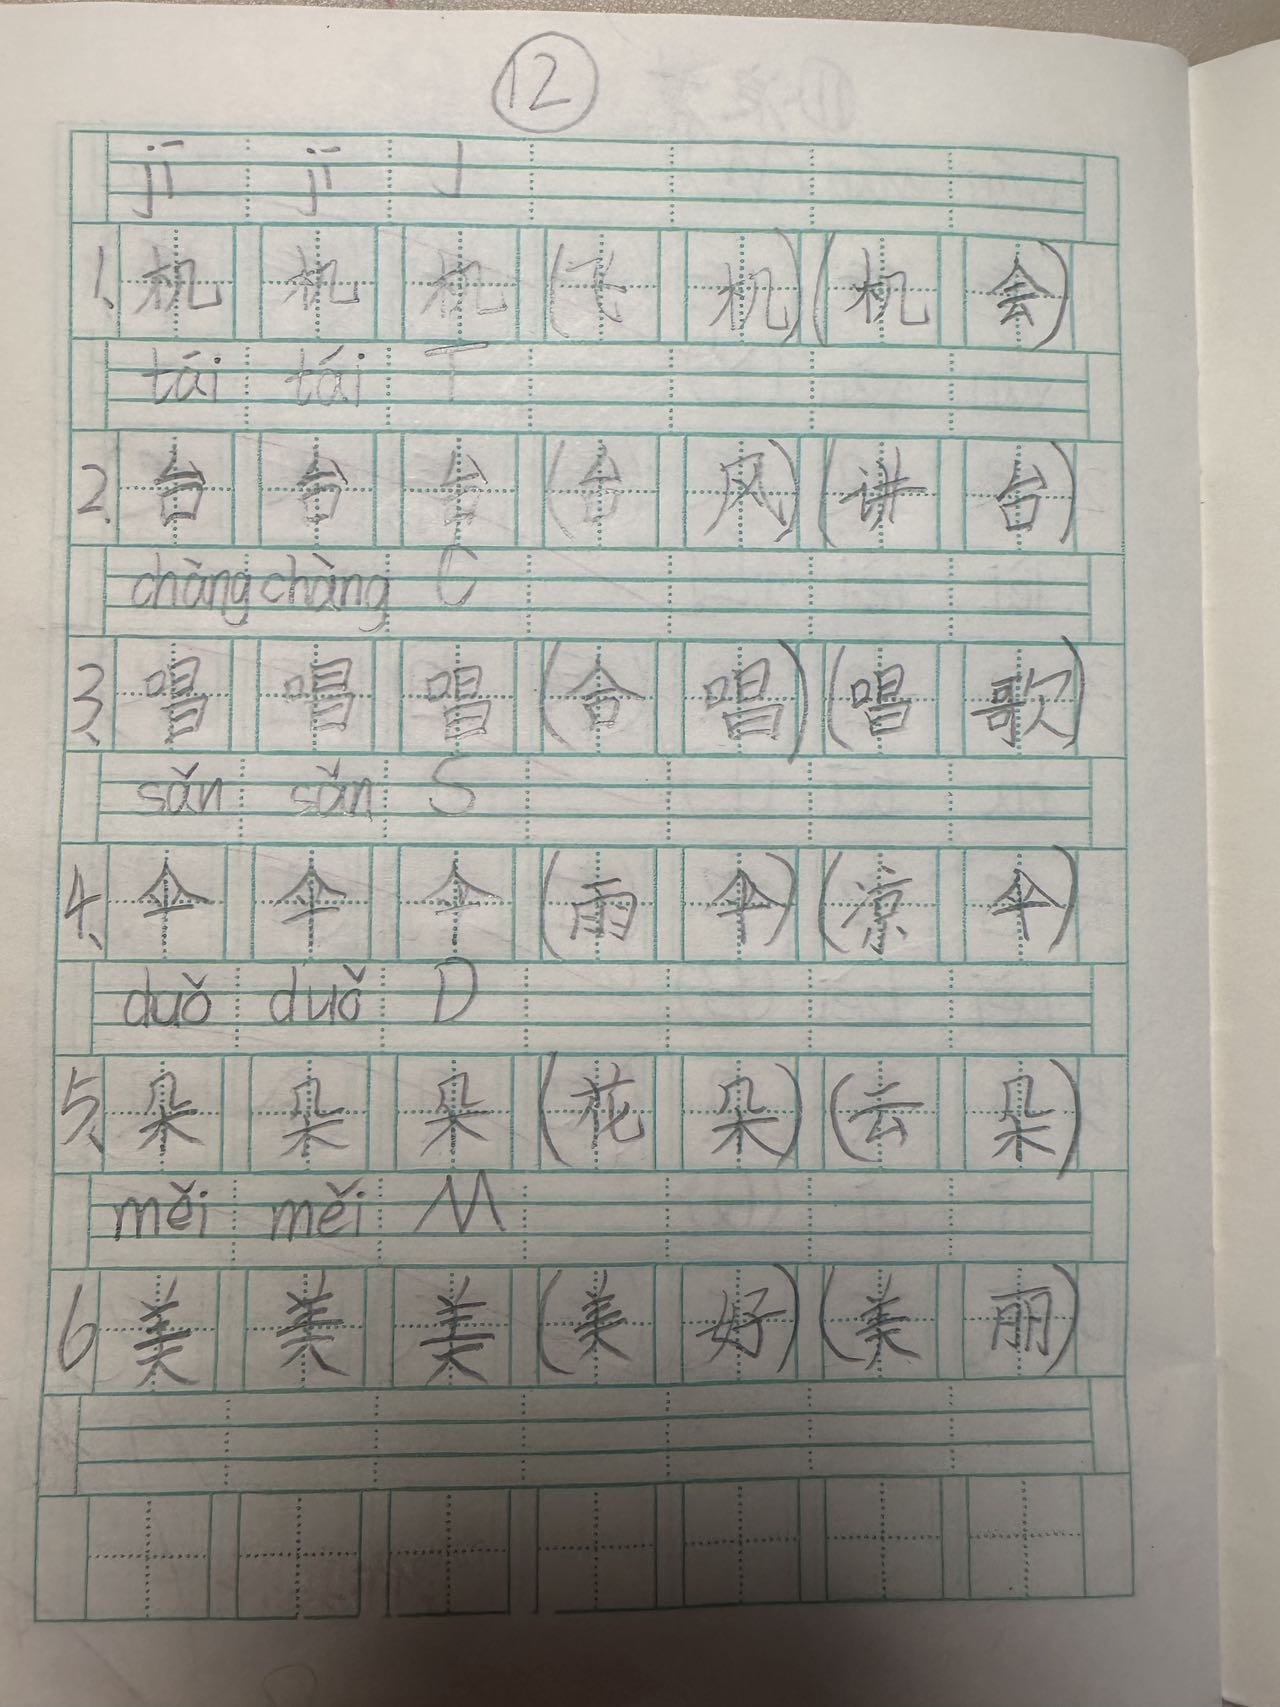 12
jī jī J
1、机 机 机 (飞 机) (机 会)
tái tái T
2、台 台 台 (台 风) (讲 台)
chàng chàng C
3、唱 唱 唱 (合 唱) (唱 歌)
sǎn sǎn S
4、伞 伞 伞 (雨 伞) (凉 伞)
duǒ duǒ D
5、朵 朵 朵 (花 朵) (云 朵)
měi měi M
6 美 美 美 (美 好) (美 丽)